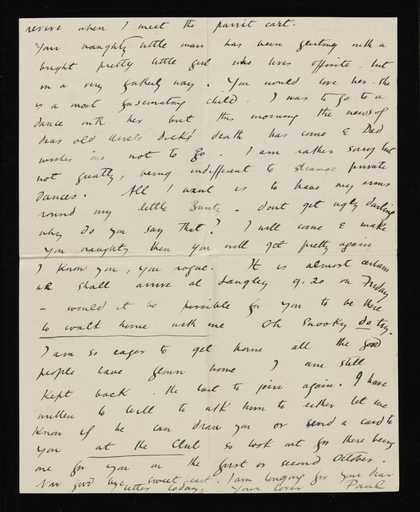 revive when I meet the parrit cart.
Your naughty little man has been flirting with a
bright pretty little girl who lives opposite. but
in a very fatherly way. You would love her. She
is a most fascinating child. I was to go to a
dance with her but this morning the news of
dear old Uncle death has come & Dad
wishes me not to go. I am rather sorry but
not greatly, being indifferent to strange private
dances. All I want is to have my arms
round my little Bunty. Don't get ugly darling
why do you say that? I will come & make
you naughty then you will get pretty again
I know you, you rogue. It is almost certain
we shall arrive at Langley 9.20 on Friday
– would it be possible for you to be there
to walk home with me Oh Snooky do try.
I am so eager to get home all the good
people have flown home I am still
kept back. the last to join again. I have
written to Will to ask him to either let me
know if he can draw you or send a card to
you at the Club so look out for there being
one for you on the first or second October.
Now good bye sweetheart. I am longing for your dear
letter today. Your lover Paul